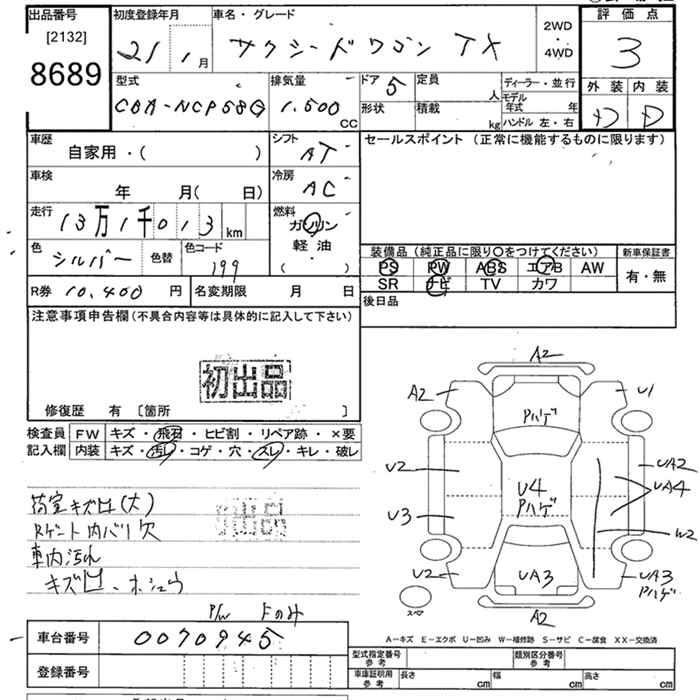 出品番号
[2132]
8689
初度登録年月
21 1月
車名・グレード
サクシードワゴン TX
2WD
・
4WD
評価点
3
外装 内装
D D
型式
CBA-NCP58G
排気量
1.500
CC
ドア 5
形状
定員 人
積載 kg
ディーラー・並行
モデル年式 年
ハンドル 左・右
車歴
自家用・( )
シフト
AT
セールスポイント (正常に機能するものに限ります)
車検
年 月( 日)
冷房
AC
走行
13万1千013km
燃料
ガソリン
軽油
( )
色
シルバー
色替
色コード
199
装備品 (純正品に限り○をつけてください)
PS PW ABS エアB AW
SR ナビ TV カワ
新車保証書
有・無
R券 10,400 円
名変期限 月 日
後日品
注意事項申告欄(不具合内容等は具体的に記入して下さい)
初出品
修復歴 有 [箇所 ]
検査員記入欄
FW キズ・飛石・ヒビ割・リペア跡・×要
内装 キズ・汚レ・コゲ・穴・スレ・キレ・破レ
荷室キズ凹(大)
Rゲート内バリ欠
車内汚れ
キズ凹・ホシュウ
初出品
P/W Fのみ
車台番号 0070945
登録番号
A2
A2
Pハゲ
U1
U2
UA2
UA4
U4
Pハゲ
U3
W2
U2
UA3
UA3
Pハゲ
スペア
A2
A-キズ E-エクボ U-凹み W-補修跡 S-サビ C-腐食 XX-交換済
型式指定番号
参考
類別区分番号
参考
車庫証明用
参考
長さ cm
幅 cm
高さ cm